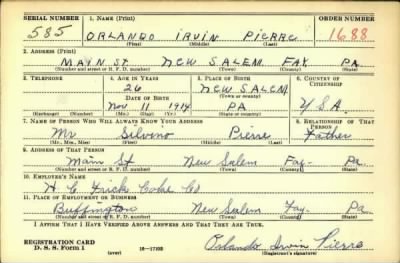 SERIAL NUMBER 1. NAME (Print) ORDER NUMBER
585 ORLANDO IRVIN PIERRE 1688
(First) (Middle) (Last)
2. ADDRESS (Print)
MAIN ST. NEW SALEM FAY. PA.
(Number and street or R. F. D. number) (Town) (County) (State)
3. TELEPHONE 4. AGE IN YEARS 5. PLACE OF BIRTH 6. COUNTRY OF CITIZENSHIP
26 NEW SALEM
DATE OF BIRTH (Town or county)
Nov 11 1914 PA USA
(Exchange) (Number) (Mo.) (Day) (Yr.) (State or country)
7. NAME OF PERSON WHO WILL ALWAYS KNOW YOUR ADDRESS 8. RELATIONSHIP OF THAT PERSON
Mr Silvino Pierre Father
(Mr., Mrs., Miss) (First) (Middle) (Last)
9. ADDRESS OF THAT PERSON
Main St New Salem Fay- Pa.
(Number and street or R. F. D. number) (Town) (County) (State)
10. EMPLOYER'S NAME
H. C. Frick Coke Co
11. PLACE OF EMPLOYMENT OR BUSINESS
Buffington New Salem Fay. Pa.
(Number and street or R. F. D. number) (Town) (County) (State)
I AFFIRM THAT I HAVE VERIFIED ABOVE ANSWERS AND THAT THEY ARE TRUE.
REGISTRATION CARD
D. S. S. Form 1 (over) 16—17105 Orlando Irvin Pierre
(Registrant's signature)